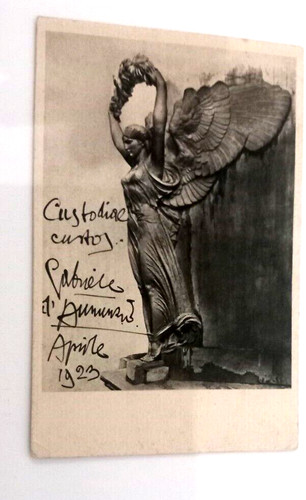 Custodiae
custos.
Gabriele
d'Annunzio
Aprile
1923